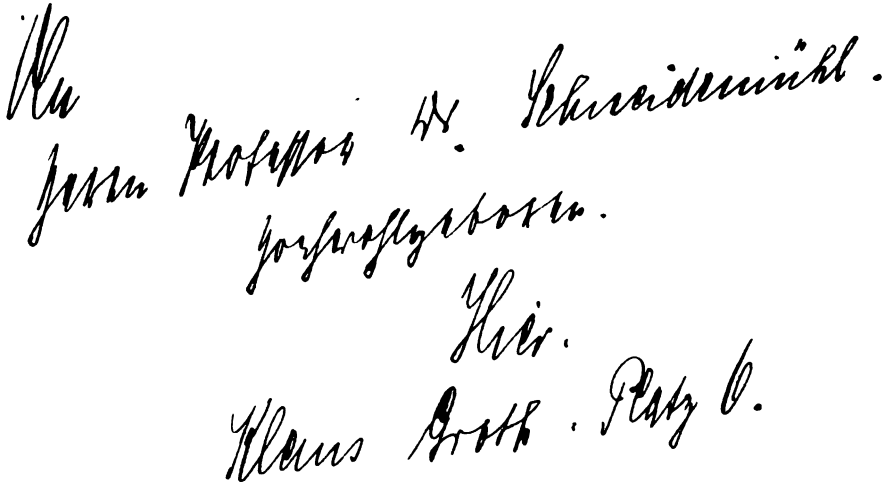 An
Herrn Professor Dr. Schneidemühl.
Hochwohlgeboren.
Hier.
Klaus Groth. Platz 6.